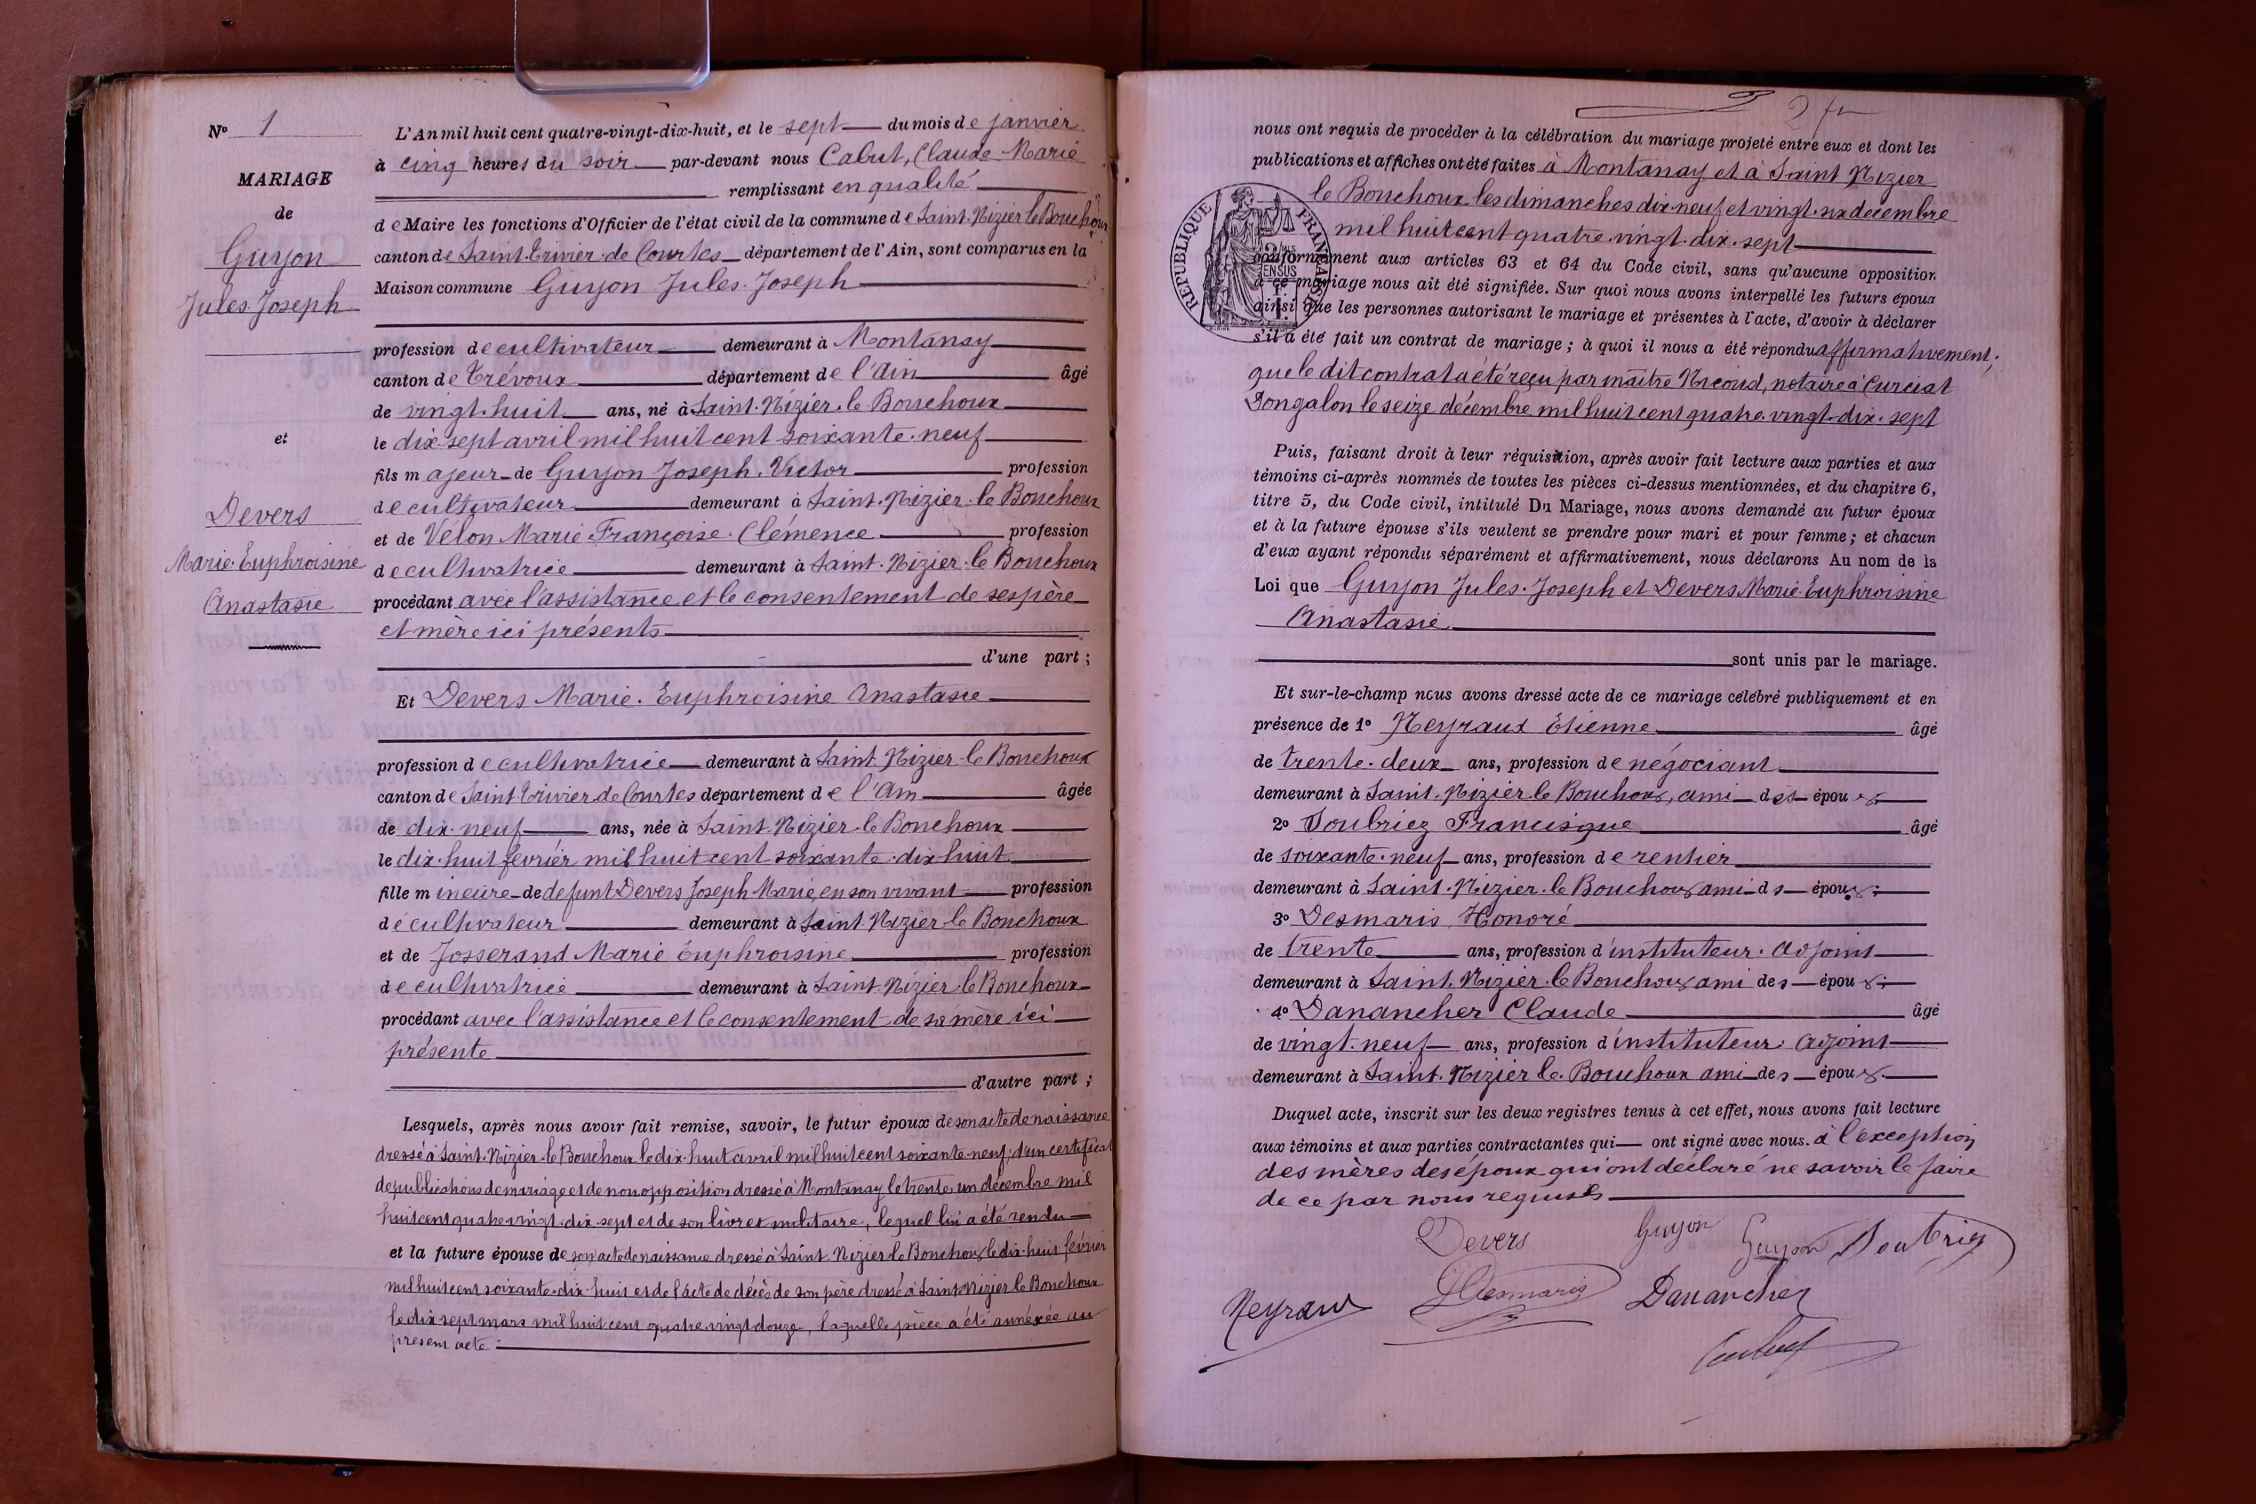 N° 1
MARIAGE
de
Guyon
Jules Joseph
et
Devers
Marie Euphroisine
Anastasie
L'An mil huit cent quatre-vingt-dix-huit, et le sept du mois de janvier
à cinq heures du soir par-devant nous Cabut, Claude Marie
remplissant en qualité
de Maire les fonctions d'Officier de l'état civil de la commune de Saint-Nizier le Bouchoux
canton de Saint-Trivier-de Courtes département de l'Ain, sont comparus en la
Maison commune Guyon Jules-Joseph
profession de cultivateur demeurant à Montanay
canton de Trévoux département de l'Ain âgé
de vingt-huit ans, né à Saint-Nizier-le Bouchoux
le dix-sept avril mil huit cent soixante-neuf
fils majeur de Guyon Joseph-Victor profession
de cultivateur demeurant à Saint-Nizier-le Bouchoux
et de Vélon Marie Françoise Clémence profession
de cultivatrice demeurant à Saint-Nizier-le Bouchoux
procédant avec l'assistance et le consentement de ses père
et mère ici présents
d'une part ;
Et Devers Marie-Euphroisine Anastasie
profession de cultivatrice demeurant à Saint Nizier-le Bouchoux
canton de Saint-Trivier-de Courtes département de l'Ain âgée
de dix-neuf ans, née à Saint-Nizier-le Bouchoux
le dix-huit février mil huit cent soixante-dix huit
fille mineure de defunt Devers Joseph-Marie, en son vivant profession
de cultivateur demeurant à Saint Nizier-le Bouchoux
et de Josserand Marie Euphroisine profession
de cultivatrice demeurant à Saint-Nizier-le Bouchoux
procédant avec l'assistance et le consentement de sa mère ici
présente
d'autre part ;
Lesquels, après nous avoir fait remise, savoir, le futur époux de son acte de naissance
dressé à Saint-Nizier-le Bouchoux le dix-huit avril mil huit cent soixante-neuf, d'un certificat
de publications de mariage et de non opposition dressé à Montanay le trente un décembre mil
huit cent quatre vingt-dix-sept et de son livret militaire, lequel lui a été rendu
et la future épouse de son acte de naissance dressé à Saint-Nizier le Bouchoux le dix-huit février
mil huit cent soixante-dix-huit et de l'acte de décès de son père dressé à Saint-Nizier le Bouchoux
le dix sept mars mil huit cent quatre-vingt douze, laquelle pièce a été annexée au
présent acte
nous ont requis de procéder à la célébration du mariage projeté entre eux et dont les
publications et affiches ont été faites à Montanay et à Saint Nizier
le Bouchoux les dimanches dix-neuf et vingt-six décembre
mil huit cent quatre-vingt-dix-sept
RÉPUBLIQUE FRANÇAISE
conformément aux articles 63 et 64 du Code civil, sans qu'aucune opposition
à ce mariage nous ait été signifiée. Sur quoi nous avons interpellé les futurs époux
ainsi que les personnes autorisant le mariage et présentes à l'acte, d'avoir à déclarer
s'il a été fait un contrat de mariage ; à quoi il nous a été répondu affirmativement,
que le dit contrat a été reçu par maître Nicoud, notaire à Curciat
Dongalon le seize décembre mil huit cent quatre-vingt-dix-sept
Puis, faisant droit à leur réquisition, après avoir fait lecture aux parties et aux
témoins ci-après nommés de toutes les pièces ci-dessus mentionnées, et du chapitre 6,
titre 5, du Code civil, intitulé Du Mariage, nous avons demandé au futur époux
et à la future épouse s'ils veulent se prendre pour mari et pour femme ; et chacun
d'eux ayant répondu séparément et affirmativement, nous déclarons Au nom de la
Loi que Guyon Jules-Joseph et Devers Marie-Euphroisine
Anastasie
sont unis par le mariage.
Et sur-le-champ nous avons dressé acte de ce mariage célébré publiquement et en
présence de 1° Neyraux Etienne âgé
de trente-deux ans, profession de négociant
demeurant à Saint-Nizier-le Bouchoux, ami des époux
2° Doubriez Francisque âgé
de soixante-neuf ans, profession de rentier
demeurant à Saint-Nizier-le Bouchoux ami ds époux ;
3° Desmaris Honoré
de trente ans, profession d'instituteur-adjoint
demeurant à Saint-Nizier-le Bouchoux ami des époux ;
4° Danancher Claude âgé
de vingt-neuf ans, profession d'instituteur-adjoint
demeurant à Saint-Nizier-le-Bouchoux ami des époux.
Duquel acte, inscrit sur les deux registres tenus à cet effet, nous avons fait lecture
aux témoins et aux parties contractantes qui ont signé avec nous. à l'exception
des mères des époux qui ont déclaré ne savoir le faire
de ce par nous requises
Devers Guyon Guyon Doubriez
Neyraux Desmaris Danancher
Cabut